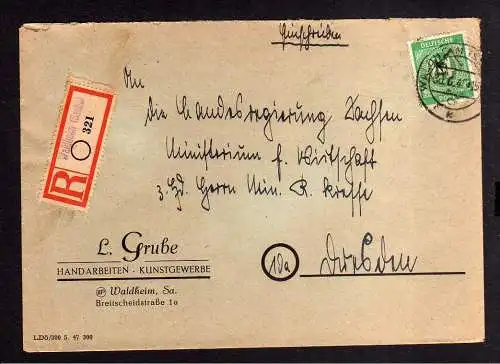 Einschreiben
DEUTSCHE
An
die Landesregierung Sachsen
Ministerium f. Wirtschaft
z. Hd. Herrn Min. R.
321
R
L. Grube
HANDARBEITEN - KUNSTGEWERBE
Waldheim, Sa.
Breitscheidstraße 1a
10a
Dresden
L.D5/300 5. 47 300